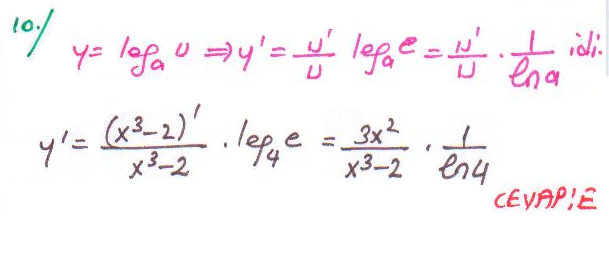 10./ y = log_a u ⇒ y' = u'/u log_a e = u'/u · 1/ln a idi.
y' = (x³-2)'/x³-2 · log₄e = 3x²/x³-2 · 1/ln4
CEVAP: E